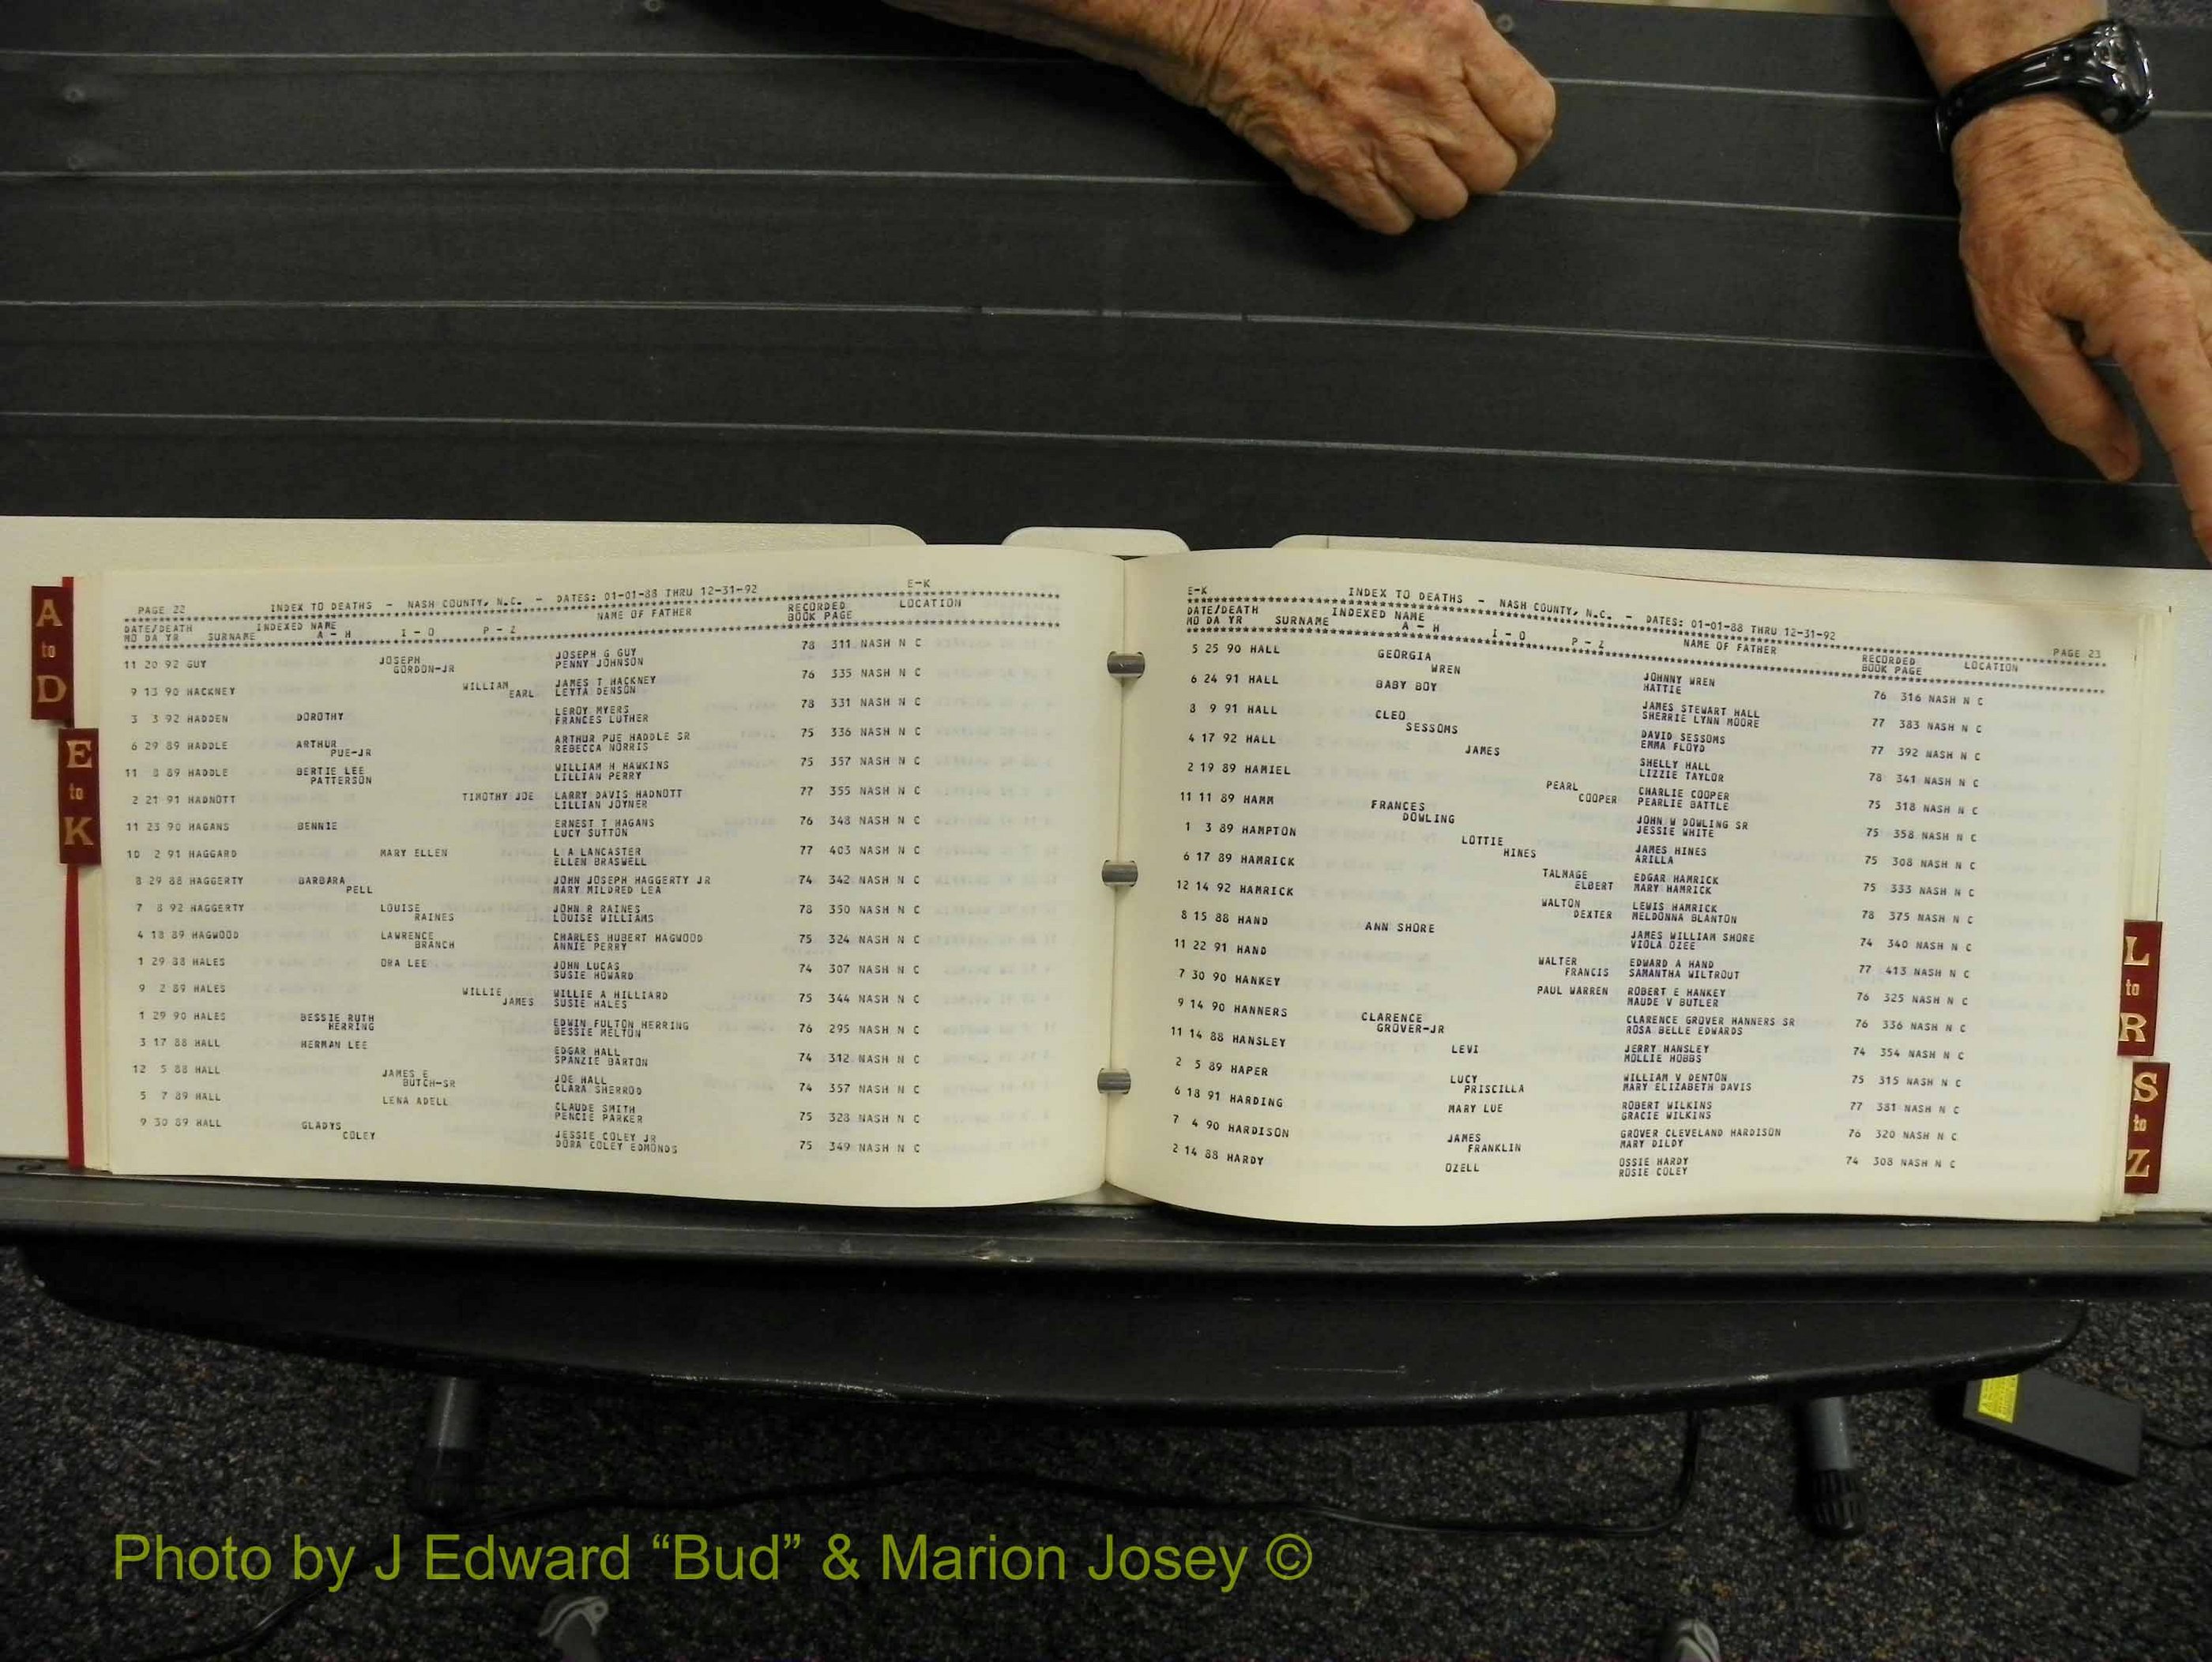 A
to
D
E
to
K
PAGE 22 INDEX TO DEATHS - NASH COUNTY, N.C. - DATES: 01-01-88 THRU 12-31-92 E-K
DATE/DEATH INDEXED NAME NAME OF FATHER RECORDED LOCATION
MO DA YR SURNAME A - H I - O P - Z BOOK PAGE
11 20 92 GUY JOSEPH JOSEPH G GUY 78 311 NASH N C
GORDON-JR PENNY JOHNSON
9 13 90 HACKNEY WILLIAM JAMES T HACKNEY 76 335 NASH N C
EARL LEYTA DENSON
3 3 92 HADDEN DOROTHY LEROY MYERS 78 331 NASH N C
FRANCES LUTHER
6 29 89 HADDLE ARTHUR ARTHUR PUE HADDLE SR 75 336 NASH N C
PUE-JR REBECCA NORRIS
11 8 89 HADDLE BERTIE LEE WILLIAM H HAWKINS 75 357 NASH N C
PATTERSON LILLIAN PERRY
2 21 91 HADNOTT TIMOTHY JOE LARRY DAVIS HADNOTT 77 355 NASH N C
LILLIAN JOYNER
11 23 90 HAGANS BENNIE ERNEST T HAGANS 76 348 NASH N C
LUCY SUTTON
10 2 91 HAGGARD MARY ELLEN L A LANCASTER 77 403 NASH N C
ELLEN BRASWELL
8 29 88 HAGGERTY BARBARA JOHN JOSEPH HAGGERTY JR 74 342 NASH N C
PELL MARY MILDRED LEA
7 8 92 HAGGERTY LOUISE JOHN R RAINES 78 350 NASH N C
RAINES LOUISE WILLIAMS
4 18 89 HAGWOOD LAWRENCE CHARLES HUBERT HAGWOOD 75 324 NASH N C
BRANCH ANNIE PERRY
1 29 88 HALES ORA LEE JOHN LUCAS 74 307 NASH N C
SUSIE HOWARD
9 2 89 HALES WILLIE WILLIE A HILLIARD 75 344 NASH N C
JAMES SUSIE HALES
1 29 90 HALES BESSIE RUTH EDWIN FULTON HERRING 76 295 NASH N C
HERRING BESSIE MELTON
3 17 88 HALL HERMAN LEE EDGAR HALL 74 312 NASH N C
SPANZIE BARTON
12 5 88 HALL JAMES E JOE HALL 74 357 NASH N C
BUTCH-SR CLARA SHERROD
5 7 89 HALL LENA ADELL CLAUDE SMITH 75 328 NASH N C
PENCIE PARKER
9 30 89 HALL GLADYS JESSIE COLEY JR 75 349 NASH N C
COLEY DORA COLEY EDMONDS
E-K INDEX TO DEATHS - NASH COUNTY, N.C. - DATES: 01-01-88 THRU 12-31-92 PAGE 23
DATE/DEATH INDEXED NAME NAME OF FATHER RECORDED LOCATION
MO DA YR SURNAME A - H I - O P - Z BOOK PAGE
5 25 90 HALL GEORGIA JOHNNY WREN 76 316 NASH N C
WREN HATTIE
6 24 91 HALL BABY BOY JAMES STEWART HALL 77 383 NASH N C
SHERRIE LYNN MOORE
8 9 91 HALL CLEO DAVID SESSOMS 77 392 NASH N C
SESSOMS EMMA FLOYD
4 17 92 HALL JAMES SHELLY HALL 78 341 NASH N C
LIZZIE TAYLOR
2 19 89 HAMIEL PEARL CHARLIE COOPER 75 318 NASH N C
COOPER PEARLIE BATTLE
11 11 89 HAMM FRANCES JOHN W DOWLING SR 75 358 NASH N C
DOWLING JESSIE WHITE
1 3 89 HAMPTON LOTTIE JAMES HINES 75 308 NASH N C
HINES ARILLA
6 17 89 HAMRICK TALMAGE EDGAR HAMRICK 75 333 NASH N C
ELBERT MARY HAMRICK
12 14 92 HAMRICK WALTON LEWIS HAMRICK 78 375 NASH N C
DEXTER MELDONNA BLANTON
8 15 88 HAND ANN SHORE JAMES WILLIAM SHORE 74 340 NASH N C
VIOLA OZEE
11 22 91 HAND WALTER EDWARD A HAND 77 413 NASH N C
FRANCIS SAMANTHA WILTROUT
7 30 90 HANKEY PAUL WARREN ROBERT E HANKEY 76 325 NASH N C
MAUDE V BUTLER
9 14 90 HANNERS CLARENCE CLARENCE GROVER HANNERS SR 76 336 NASH N C
GROVER-JR ROSA BELLE EDWARDS
11 14 88 HANSLEY LEVI JERRY HANSLEY 74 354 NASH N C
MOLLIE HOBBS
2 5 89 HAPER LUCY WILLIAM V DENTON 75 315 NASH N C
PRISCILLA MARY ELIZABETH DAVIS
6 18 91 HARDING MARY LUE ROBERT WILKINS 77 381 NASH N C
GRACIE WILKINS
7 4 90 HARDISON JAMES GROVER CLEVELAND HARDISON 76 320 NASH N C
FRANKLIN MARY DILDY
2 14 88 HARDY OZELL OSSIE HARDY 74 308 NASH N C
ROSIE COLEY
L
to
R
S
to
Z
Photo by J Edward “Bud” & Marion Josey ©